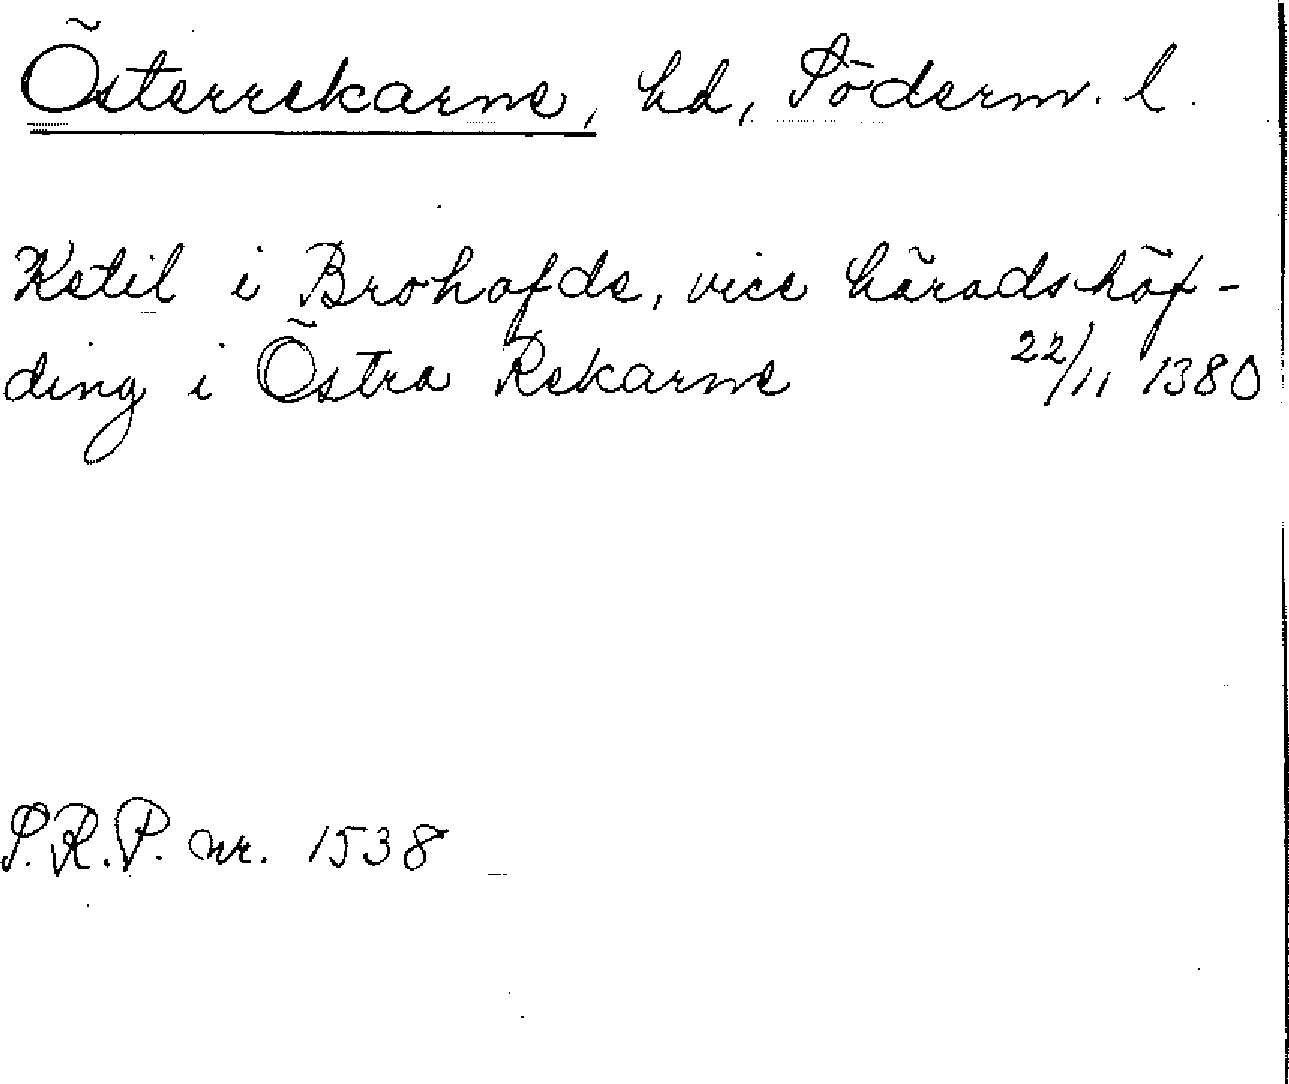 Österrekarne, hd, Söderm. l.
Ketil i Brohofde, vice häradshöf-
ding i Östra Rekarne 22/11 1380
S.R.P. nr. 1538